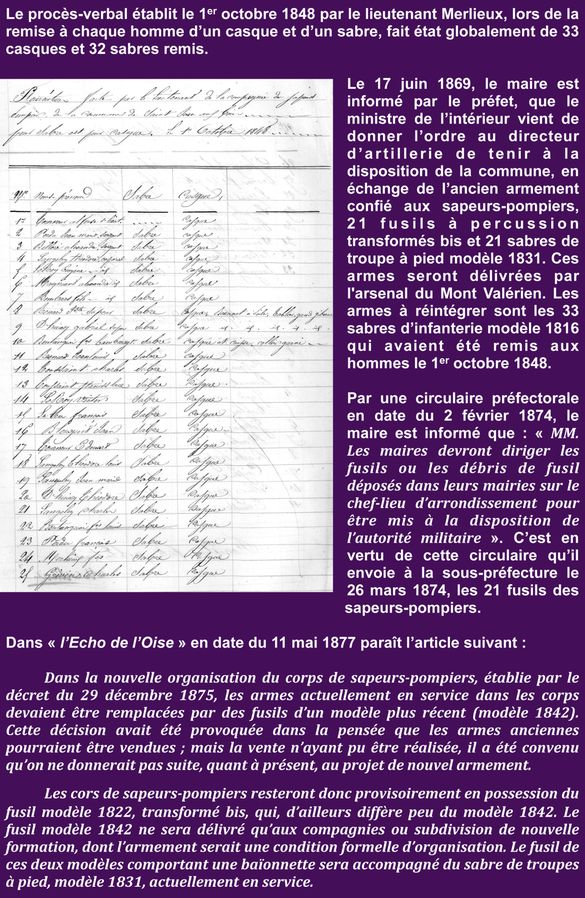 Le procès-verbal établit le 1er octobre 1848 par le lieutenant Merlieux, lors de la
remise à chaque homme d'un casque et d'un sabre, fait état globalement de 33
casques et 32 sabres remis.
fait par le lieutenant de la compagnie de
de la commune de Saint
1848
Sabre
1 casque
2 Sabre casque
3 Sabre casque
4 Sabre casque
5 Sabre casque
6 Sabre casque
7 Sabre casque
8 Sabre
9 Sabre
10 Sabre
11 Sabre Casque
12 Sabre Casque
13 Sabre Casque
14 Sabre Casque
15 français Sabre Casque
16 Sabre Casque
17 Sabre Casque
18 Sabre Casque
19 Sabre Casque
20 Sabre Casque
21 Sabre Casque
22 Sabre Casque
23 français Sabre Casque
24 Sabre Casque
25 Charles Sabre Casque
Le 17 juin 1869, le maire est
informé par le préfet, que le
ministre de l'intérieur vient de
donner l'ordre au directeur
d'artillerie de tenir à la
disposition de la commune, en
échange de l'ancien armement
confié aux sapeurs-pompiers,
21 fusils à percussion
transformés bis et 21 sabres de
troupe à pied modèle 1831. Ces
armes seront délivrées par
l'arsenal du Mont Valérien. Les
armes à réintégrer sont les 33
sabres d'infanterie modèle 1816
qui avaient été remis aux
hommes le 1er octobre 1848.
Par une circulaire préfectorale
en date du 2 février 1874, le
maire est informé que : « MM.
Les maires devront diriger les
fusils ou les débris de fusil
déposés dans leurs mairies sur le
chef-lieu d'arrondissement pour
être mis à la disposition de
l'autorité militaire ». C'est en
vertu de cette circulaire qu'il
envoie à la sous-préfecture le
26 mars 1874, les 21 fusils des
sapeurs-pompiers.
Dans « l'Echo de l'Oise » en date du 11 mai 1877 paraît l'article suivant :
Dans la nouvelle organisation du corps de sapeurs-pompiers, établie par le
décret du 29 décembre 1875, les armes actuellement en service dans les corps
devaient être remplacées par des fusils d'un modèle plus récent (modèle 1842).
Cette décision avait été provoquée dans la pensée que les armes anciennes
pourraient être vendues ; mais la vente n'ayant pu être réalisée, il a été convenu
qu'on ne donnerait pas suite, quant à présent, au projet de nouvel armement.
Les cors de sapeurs-pompiers resteront donc provisoirement en possession du
fusil modèle 1822, transformé bis, qui, d'ailleurs diffère peu du modèle 1842. Le
fusil modèle 1842 ne sera délivré qu'aux compagnies ou subdivision de nouvelle
formation, dont l'armement serait une condition formelle d'organisation. Le fusil de
ces deux modèles comportant une baïonnette sera accompagné du sabre de troupes
à pied, modèle 1831, actuellement en service.